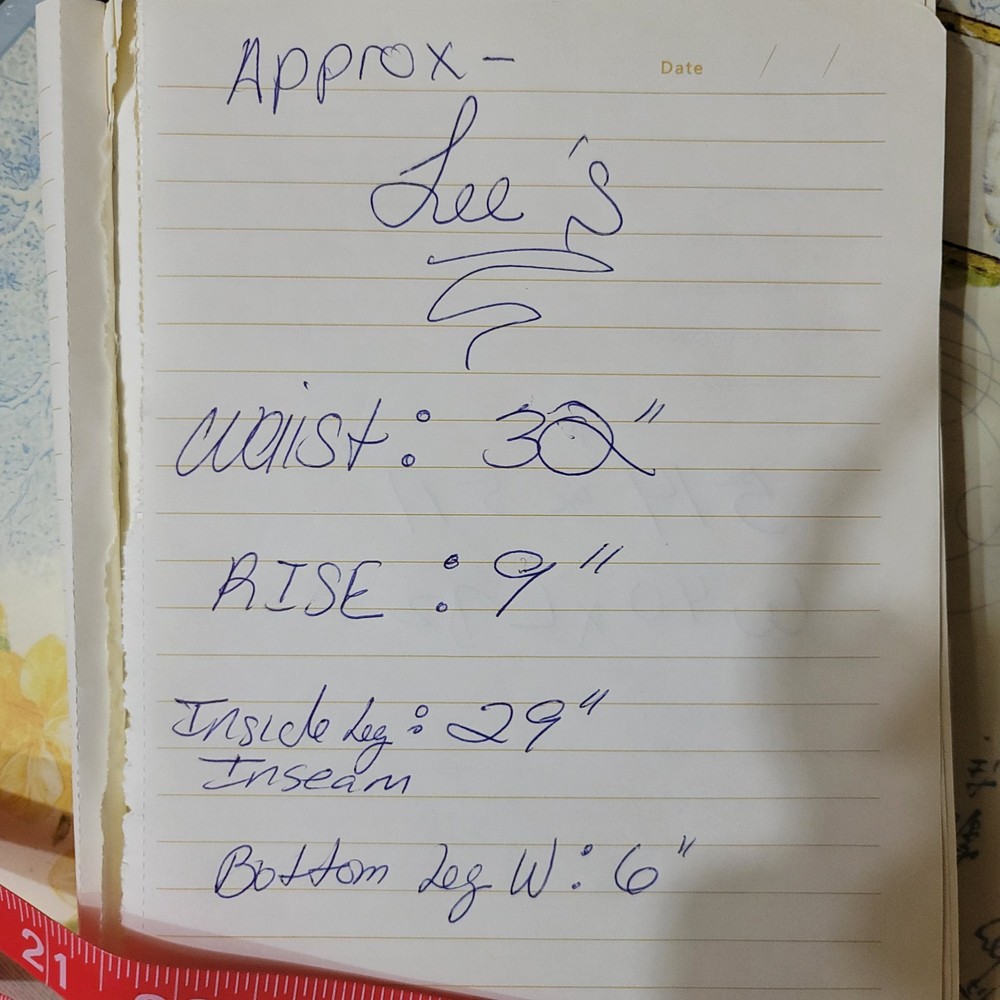 Approx -
Date / /
Lee's
Waist:
RISE : 9"
Inside Leg: 29"
Inseam
Bottom Leg W: 6"
21